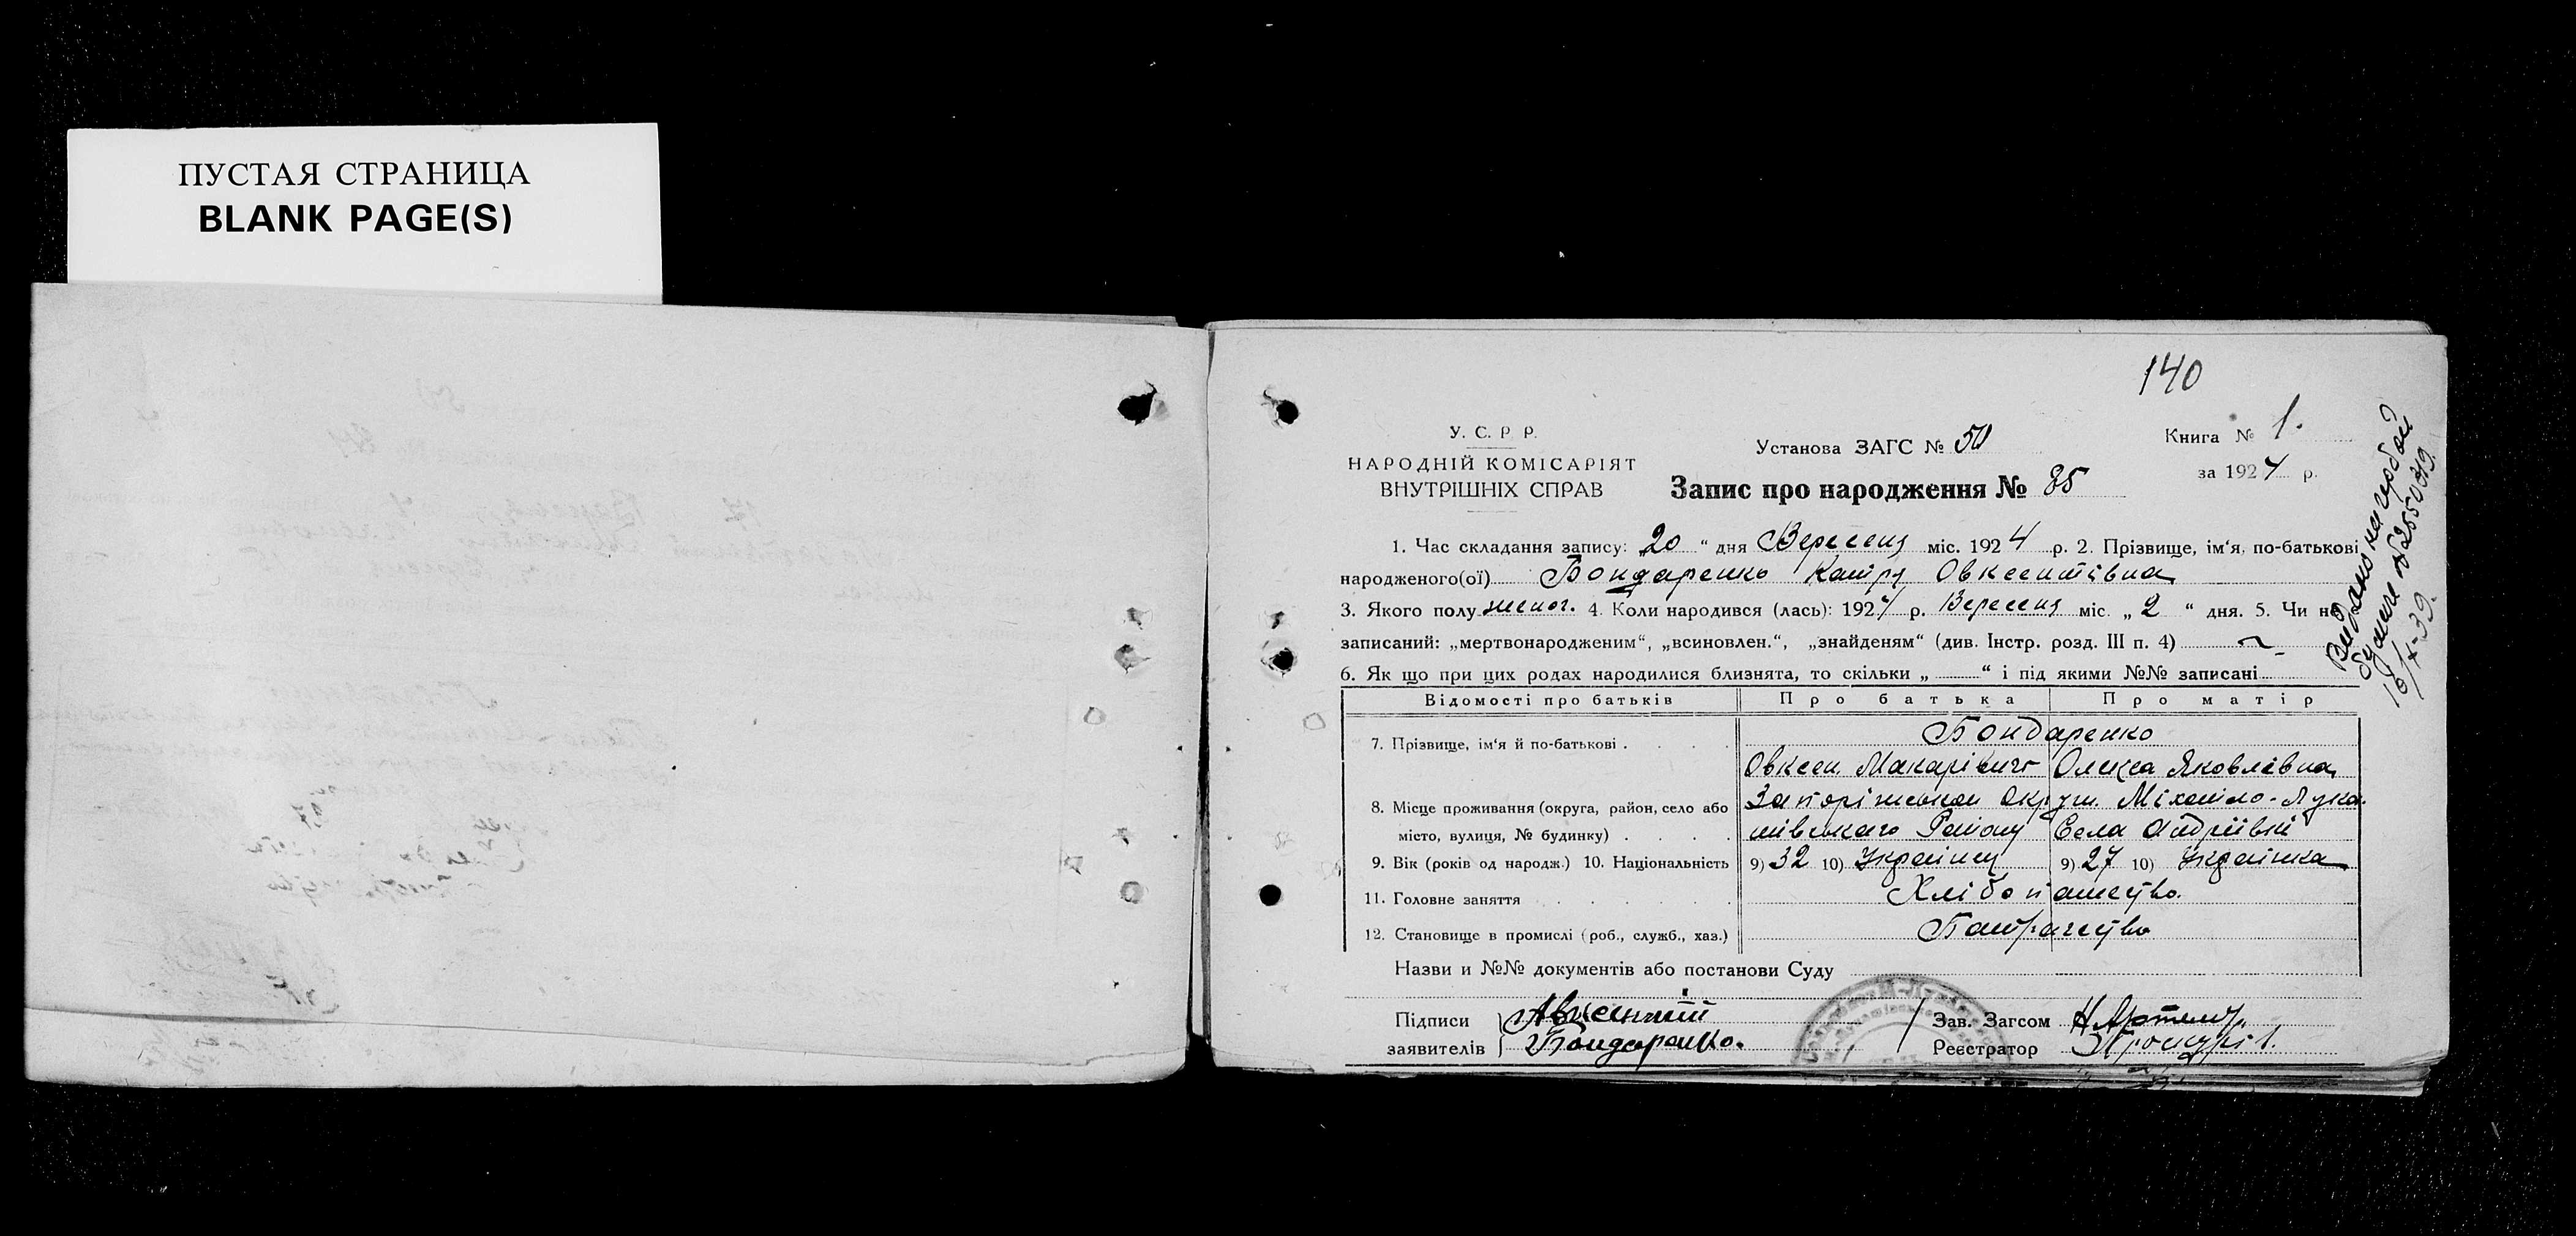 ПУСТАЯ СТРАНИЦА
BLANK PAGE(S)
140
У. С. Р. Р.
НАРОДНІЙ КОМІСАРІЯТ
ВНУТРІШНІХ СПРАВ
Установа ЗАГС № 50
Запис про народження № 85
Книга № 1.
за 1924 р.
1. Час складання запису: „20“ дня Вересеня міс. 1924 р. 2. Прізвище, ім‘я, по-батькові
народженого(ої) Бондаренко Катря Овксентівна
3. Якого полу женог. 4. Коли народився (лась): 1924 р. Вересеня міс. „2“ дня. 5. Чи не
записаний: „мертвонародженим“, „всиновлен.“, „знайденям“ (див. Інстр. розд. III п. 4)
6. Як що при цих родах народилися близнята, то скільки „ “ і під якими №№ записані
Відомості про батьків Про батька Про матір
7. Прізвище, ім‘я й по-батькові . . . . Бондаренко
Овксен. Макарієвич Олекса Яковлевна
8. Місце проживання (округа, район, село або Запоріжськой Окруж. Міхайло-Лука-
місто, вулиця, № будинку) . . . . шівського Району Села Андріівкі
9. Вік (років од народж.) 10. Національність 9) 32 10) Украінец 9) 27 10) Украінка
11. Головне заняття . . . . . . Хлібопашество.
12. Становище в промислі (роб., служб., хаз.) Батрачество
Назви и №№ документів або постанови Суду
Підписи Авксентий Зав. Загсом
заявителів Бондаренко. Реєстратор
Видано на гербовой
бумаге № 2550319.
16/X-39.